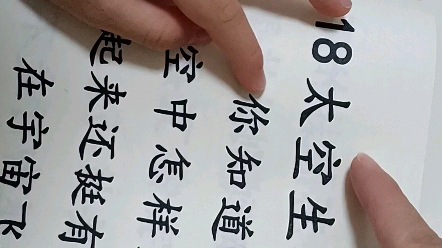 18 太空生
你知道
空中怎样
起来还挺有
在宇宙飞